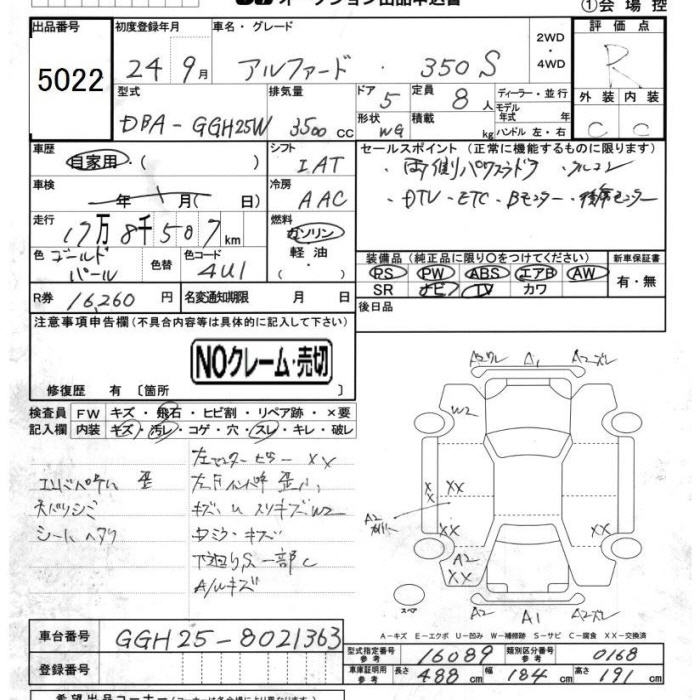 ①会場控
出品番号 初度登録年月 車名・グレード 2WD・4WD 評価点
5022 24 9月 アルファード・350S R
型式 排気量 ドア 5 定員 8人 ディーラー・並行 外装 内装
DBA-GGH25W 3500cc 形状 WG 積載 kg モデル年式 年 ハンドル 左・右 C C
車歴 自家用・( ) シフト IAT セールスポイント(正常に機能するものに限ります)
・両側パワスラドア
車検 年 月( 日) 冷房 AAC ・DTV・ETC・Bモニター・後席モニター
走行 17万8千507km 燃料 ガソリン・軽油・( )
色 ゴールドパール 色替 色コード 4U1 装備品(純正品に限り○をつけてください) 新車保証書
PS PW ABS エアB AW 有・無
SR ナビ TV カワ
R券 16,260円 名変通知期限 月 日 後日品
注意事項申告欄(不具合内容等は具体的に記入して下さい)
NOクレーム・売切
修復歴 有〔箇所 〕
検査員記入欄 FW キズ・飛石・ヒビ割・リペア跡・×要
内装 キズ・汚レ・コゲ・穴・スレ・キレ・破レ
左センターピラーXX
シートヘタリ
下廻りS一部C
A/Wキズ
A1 A2
W2
XX XX
XX XX
A2
XX
スペア
A2 A1
A-キズ E-エクボ U-凹み W-補修跡 S-サビ C-腐食 XX-交換済
車台番号 GGH25-8021363
型式指定番号 参考 16089 類別区分番号 参考 0168
登録番号 車庫証明用 参考 長さ 488cm 幅 184cm 高さ 191cm